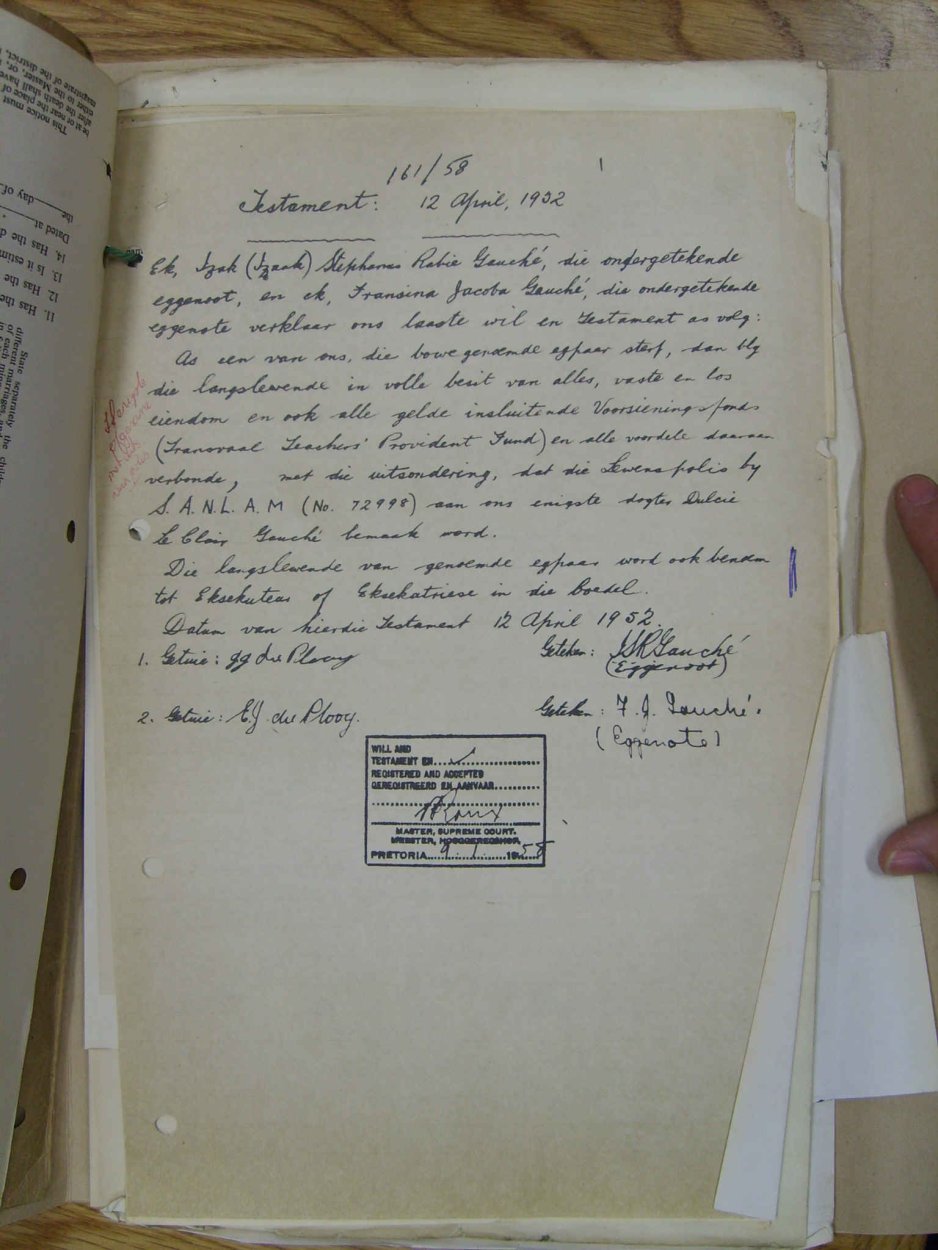 161/58
Testament: 12 April, 1932
Ek, Izak (Izaak) Stephanus Rabie Gauché, die ondergetekende
eggenoot, en ek, Fransina Jacoba Gauché, die ondergetekende
eggenote verklaar ons laaste wil en Testament as volg:
As een van ons, die bowegenoemde egpaar sterf, dan bly
die langslewende in volle besit van alles, vaste en los
eiendom en ook alle gelde insluitende Voorsieningsfonds
(Transvaal Teachers' Provident Fund) en alle voordele daaraan
verbonde, met die uitsondering, dat die Lewenspolis by
S.A.N.L.A.M (No. 72998) aan ons enigste dogter Dulcie
Le Clair Gauché bemaak word.
Die langslewende van genoemde egpaar word ook benoem
tot Eksekuteur of Eksekutriese in die boedel.
Datum van hierdie Testament 12 April 1932.
1. Getuie: gg du Plooy
Geteken: ISRGauché
(Eggenoot)
2. Getuie: E.J. du Plooy.
Geteken: F. J. Gauché.
(Eggenote)
WILL AND
TESTAMENT EN
REGISTERED AND ACCEPTED
GEREGISTREERD EN AANVAAR
MASTER, SUPREME COURT.
MEESTER, HOOGGEREGSHOF,
PRETORIA 9.1.1958
This notice must
be at or near the place of
after the death shall have
either to the Master, or,
magistrate of the district,
the day of
Dated at
14. Has the d
13. Is it estim
12. Has the
11. Has the
State separately the
different marriages,
of each